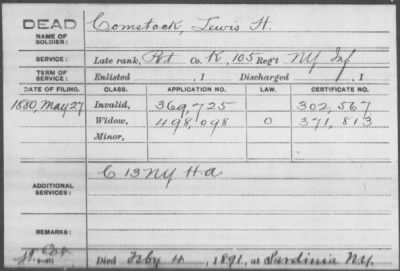 DEAD
NAME OF SOLDIER: Comstock, Lewis H.
SERVICE: Late rank, Pvt Co. K, 105 Reg't NY Inf
TERM OF SERVICE: Enlisted , 1 Discharged , 1
DATE OF FILING. CLASS. APPLICATION NO. LAW. CERTIFICATE NO.
1880, May 27 Invalid, 369,725 302,567
Widow, 498,098 O 371,813
Minor,
C 13 NY H A
ADDITIONAL SERVICES:
REMARKS:
Died Feby 4, 1891, at Sardinia NY.